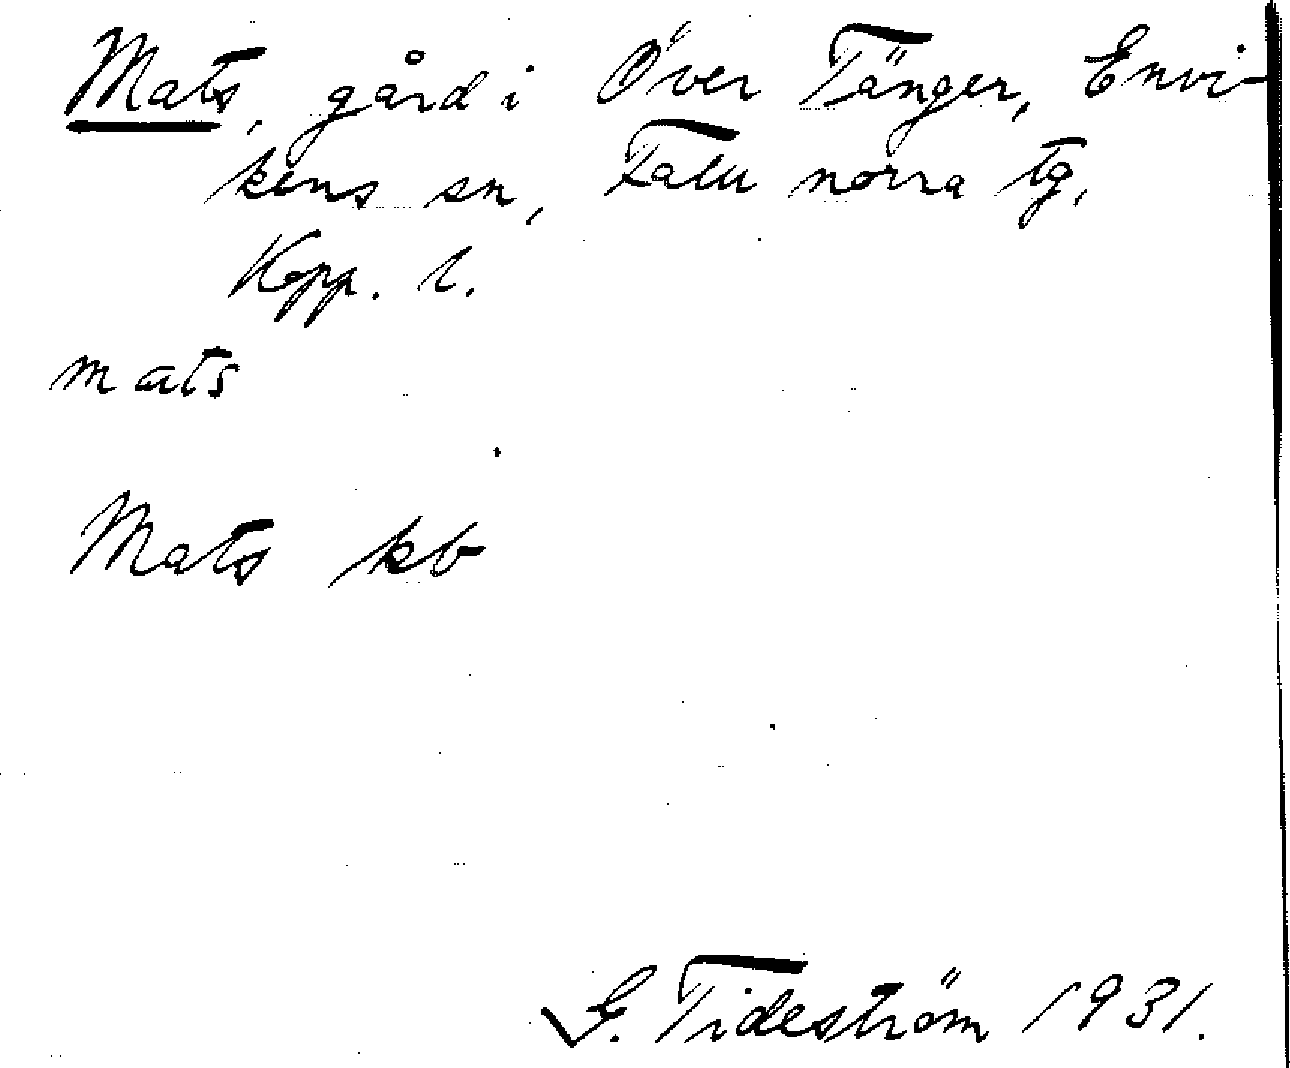 Mats, gård i Över Tänger, Envi-
kens sn, Falu norra tg,
Kopp. l.
mats
Mats kb
G. Tideström 1931.